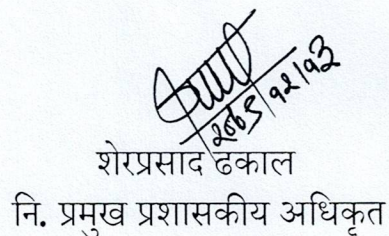 २०७९/१२/१३
शेरप्रसाद ढकाल
नि. प्रमुख प्रशासकीय अधिकृत